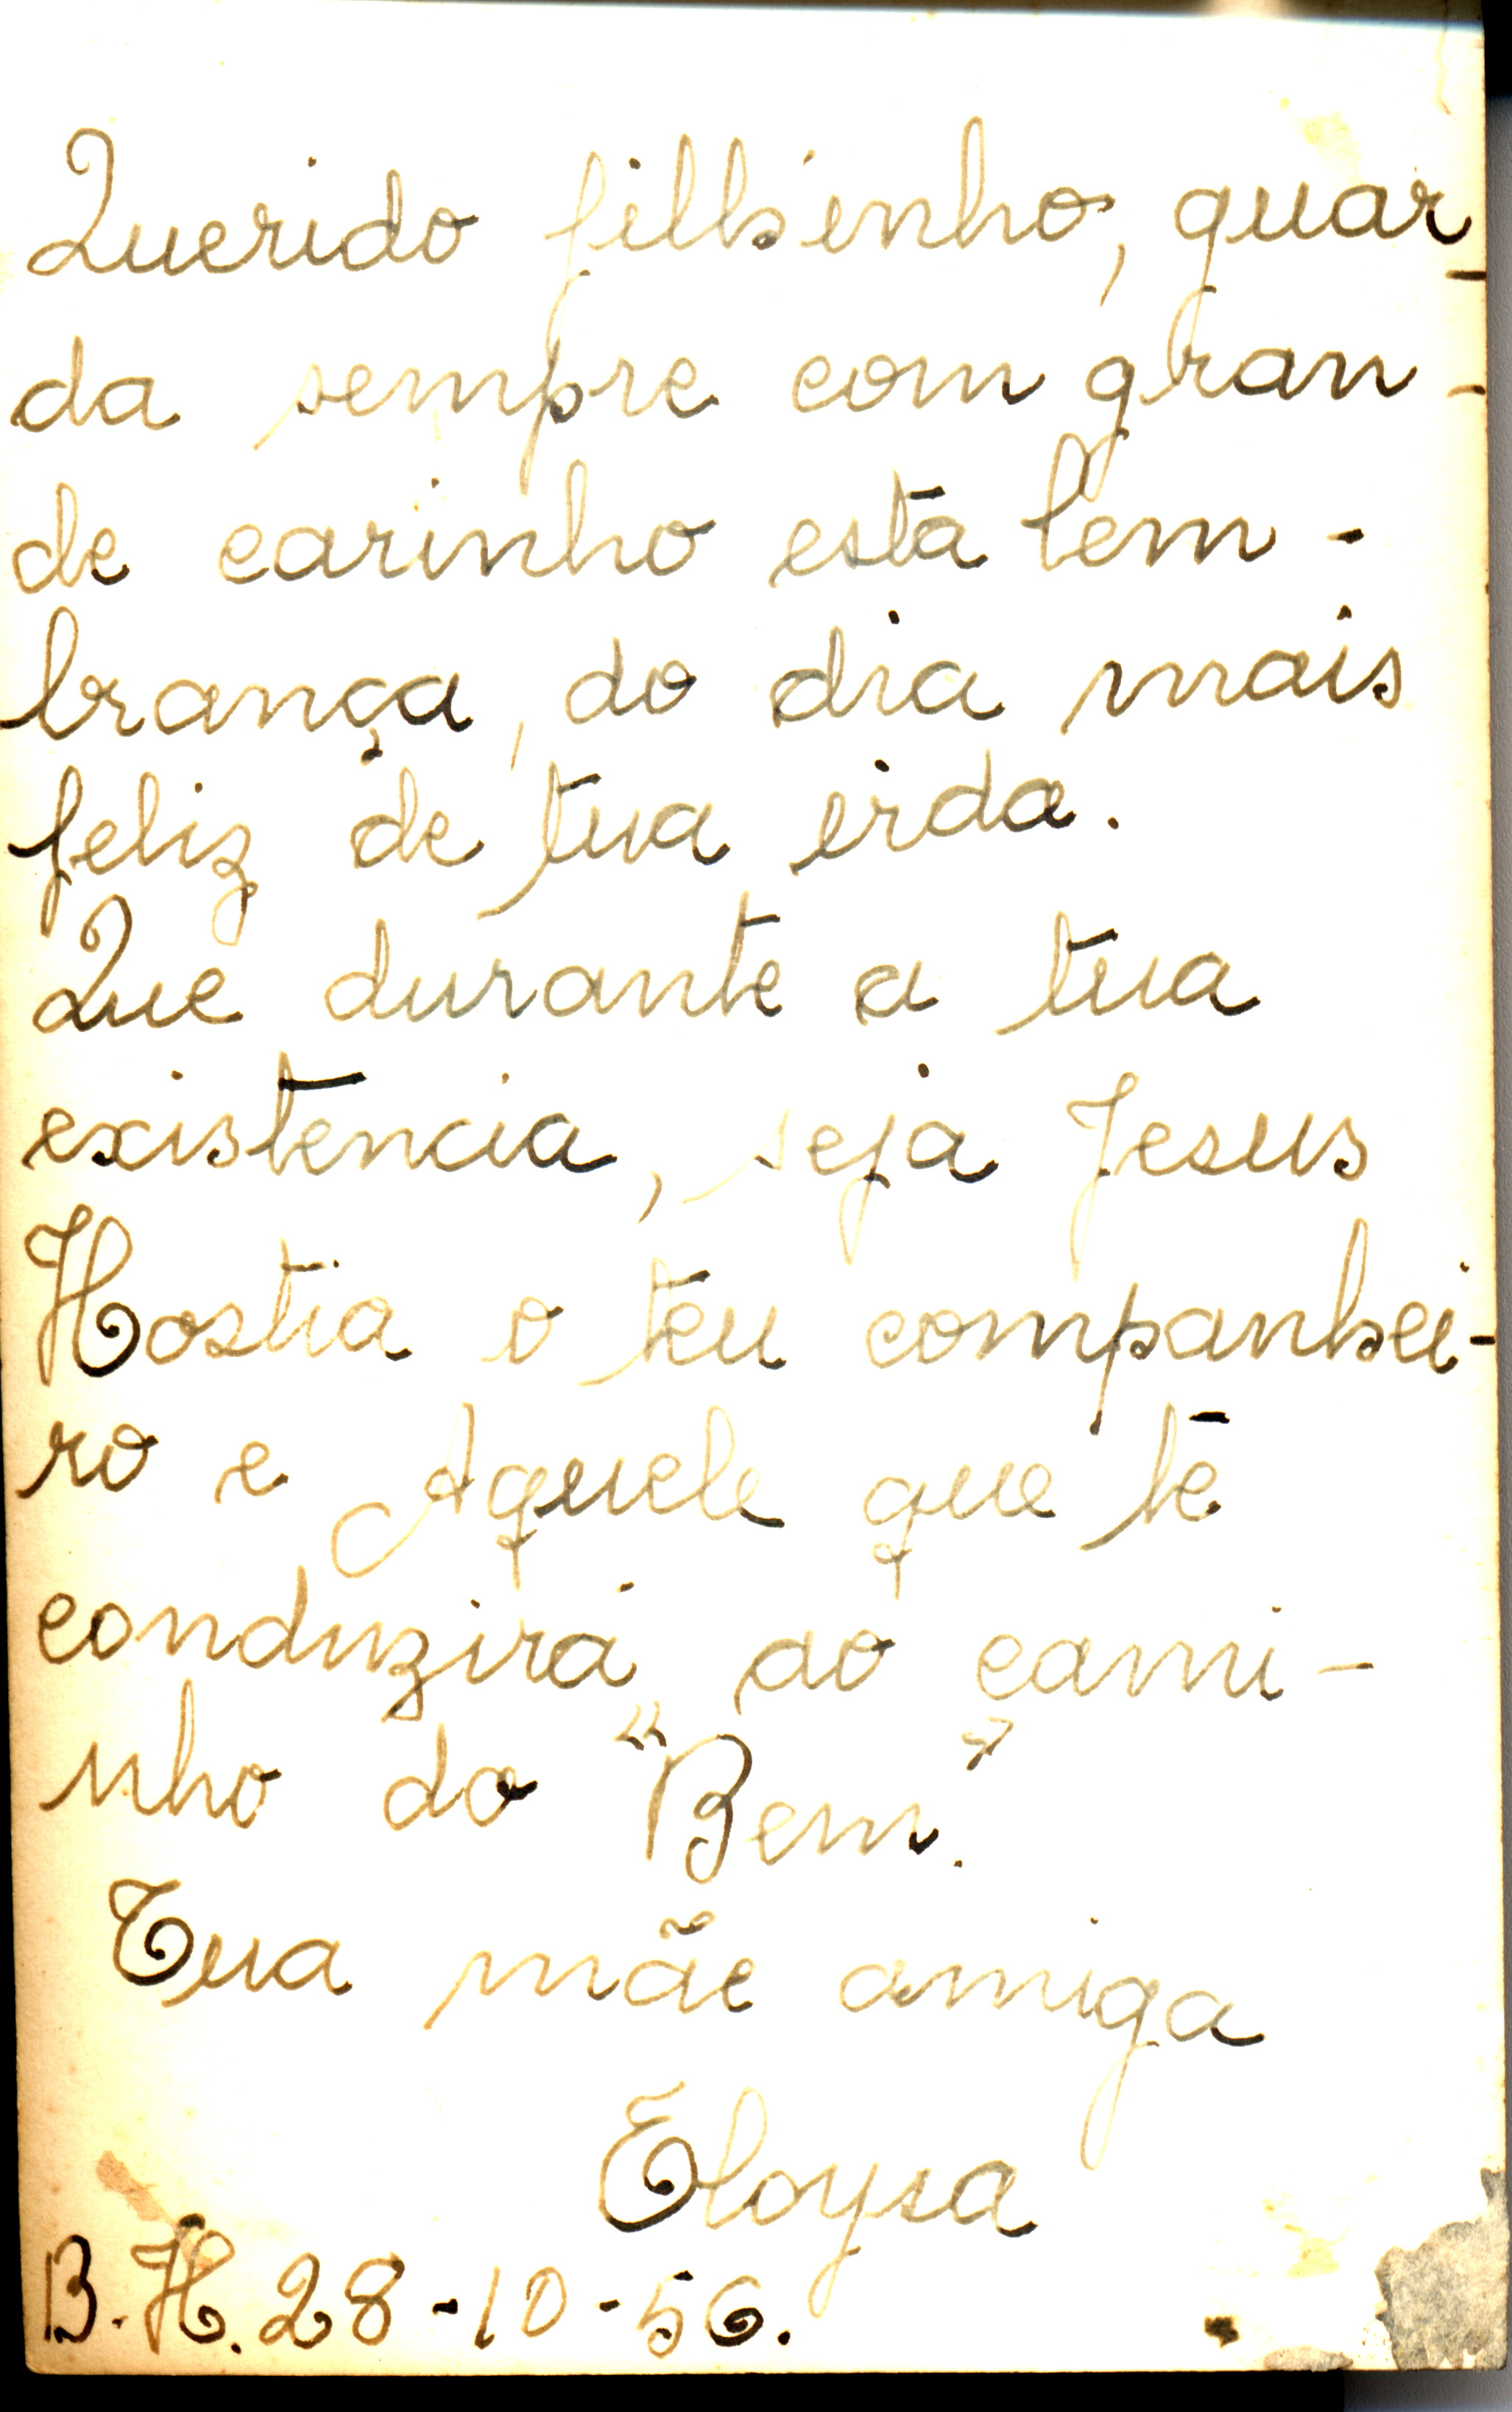 Querido filhinho, guar-
da sempre com gran-
de carinho esta lem-
brança, do dia mais
feliz de tua vida.
Que durante a tua
existencia, seja Jesus
Hostia o teu companhei-
ro e Aquele que te
conduzirá ao cami-
nho do "Bem".
Tua mãe amiga
Eloysa
B.H. 28-10-56.